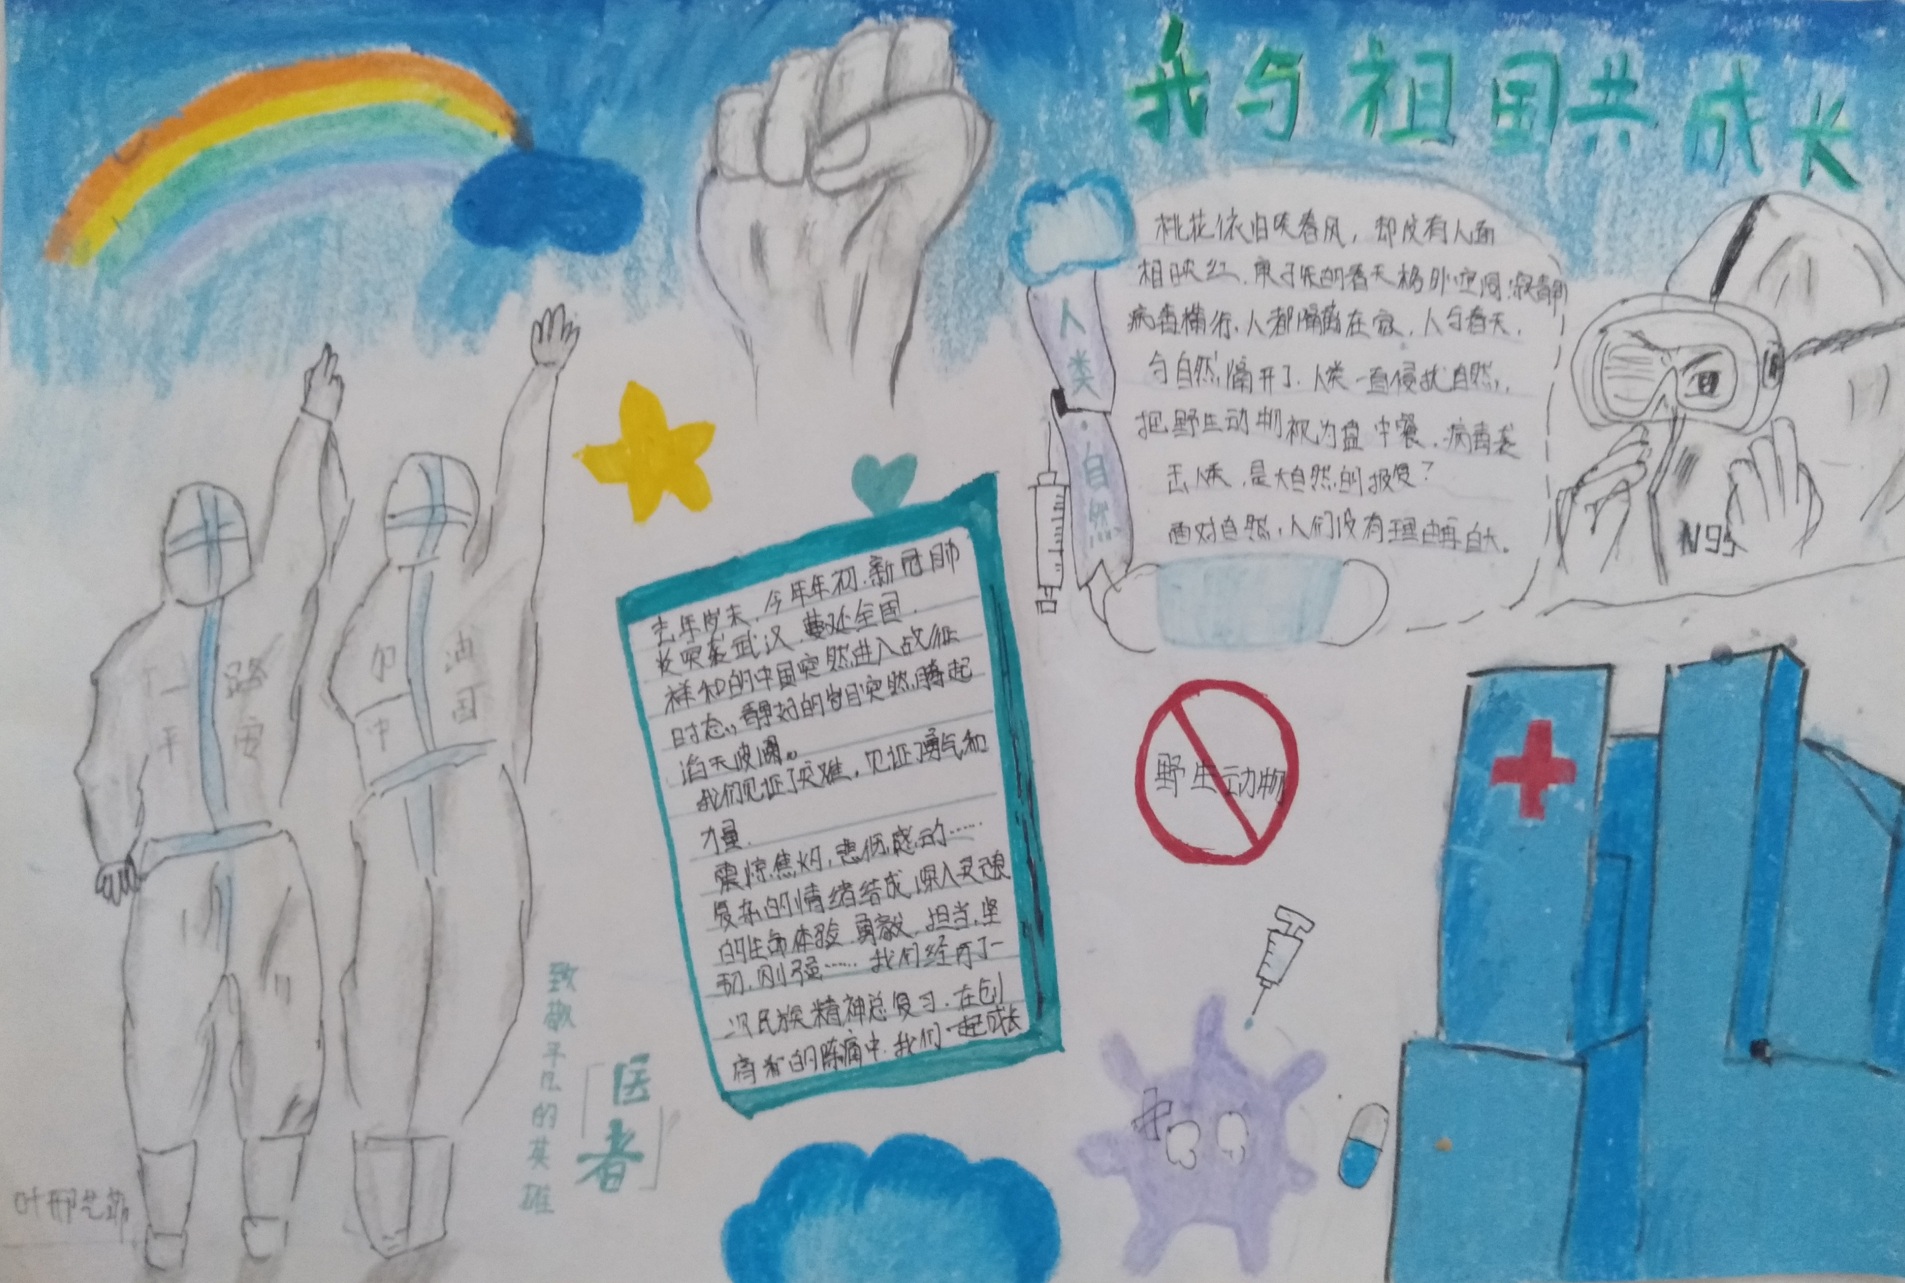 我与祖国共成长
桃花依旧笑春风，却没有人面
相映红.庚子年的春天格外空阔.寂静
病毒横行.人都隔离在家.人与春天.
与自然隔开了.人类一直侵扰自然,
把野生动物视为盘中餐.病毒袭
击人类.是大自然的报复？
面对自然，人们没有理由再自大。
人类·自然
N95
去年岁末.今年年初.新冠肺
炎突袭武汉.蔓延全国.
祥和的中国突然进入战征
时态,,静好的岁月突然腾起
滔天波澜。
我们见证了灾难，见证了勇气和
力量.
震惊.焦灼，悲伤.感动……
复杂的情绪结成深入灵魂
的生命体验.勇敢.担当.坚
韧.刚强……我们经历了一
次民族精神总复习.在创
痛者的阵痛中.我们一起成长
野生动物
一路
平安
加油
中国
致敬平凡的英雄
「医者」